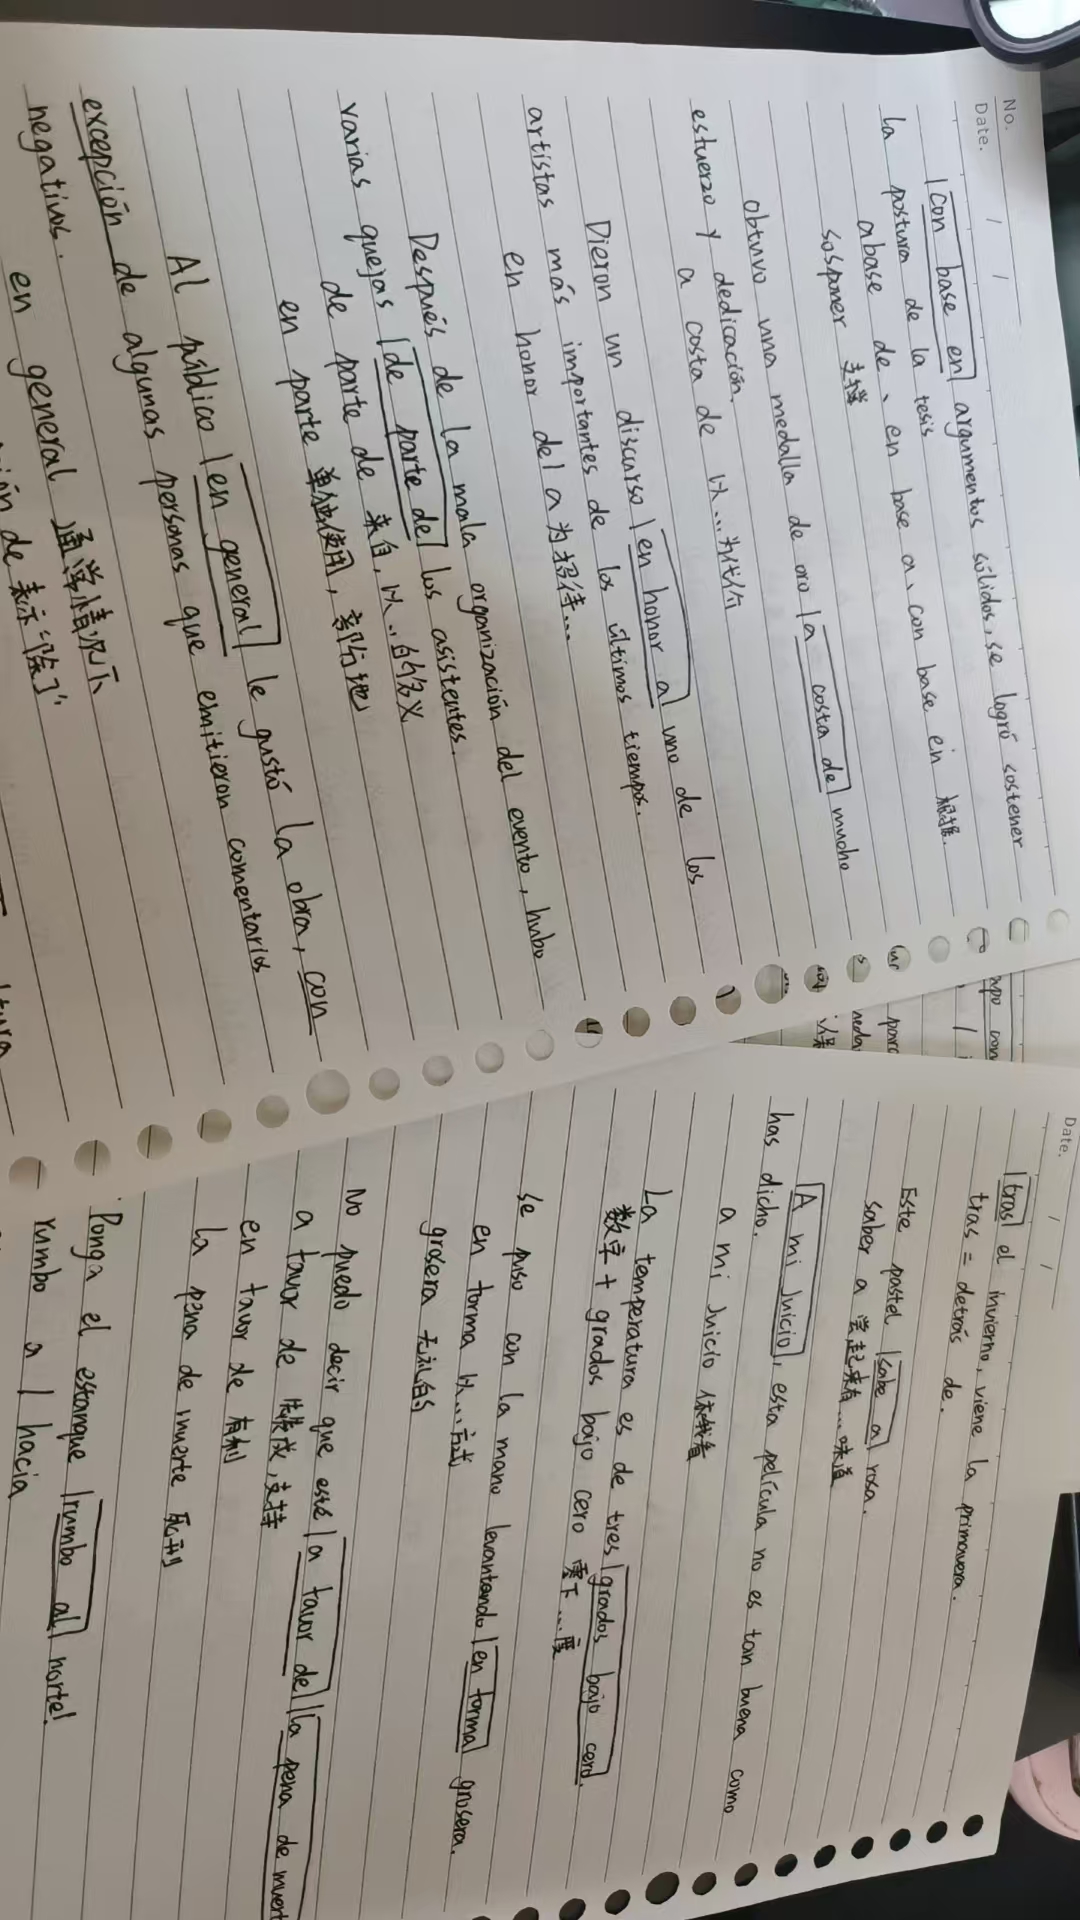 No.
Date. / /
Con base en argumentos sólidos, se logró sostener
la postura de la tesis
abase de、en base a、con base en 根据.
sosponer 支撑
obtuvo una medalla de oro a costa de mucho
esfuerzo y dedicación.
a costa de 以...为代价
Dieron un discurso en honor a uno de los
artistas más importantes de los últimos tiempos.
en honor de/ a 为招待...
Después de la mala organización del evento, hubo
varias quejas de parte de los asistentes.
de parte de 来自, 以..的名义
en parte 单独使用, 部分地
Al público en general le gustó la obra, con
excepción de algunas personas que emitieron comentarios
negativos.
en general 通常情况下
ión de 表示"除了"
Date. / /
tras el invierno, viene la primavera.
tras = detrás de.
Este pastel sabe a rosa.
saber a 尝起来有...味道
A mi juicio, esta película no es tan buena como
has dicho.
a mi juicio 依我看
La temperatura es de tres grados bajo cero.
数字 + grados bajo cero 零下...度
se puso con la mano levantando en forma grosera.
en forma 以...方式
grosera 无礼的
No puedo decir que esté a favor de la pena de muert
a favor de 赞成,支持
en favor de 有利
la pena de muerte 死刑
Ponga el estanque rumbo al norte!
rumbo a / hacia